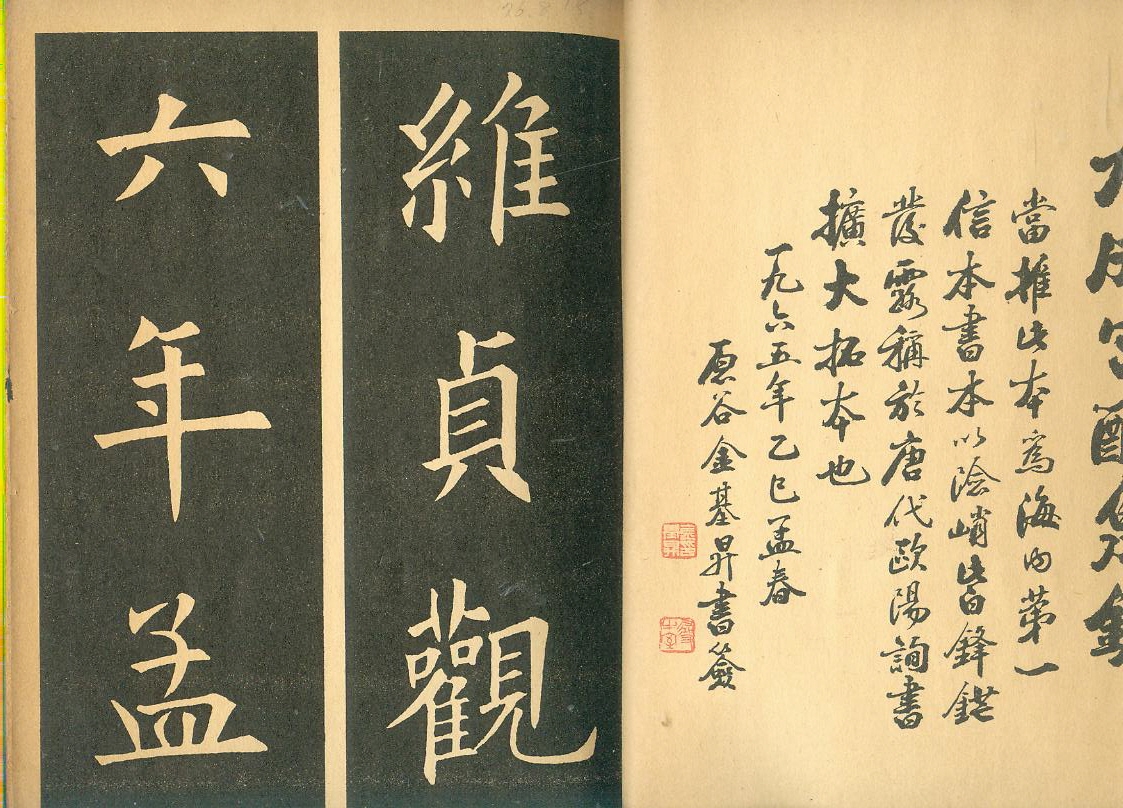 九成宮醴泉銘
當推此本為海內第一
信本書本以險峭皆鋒鋩
發露稱於唐代歐陽詢書
擴大拓本也
一九六五年乙巳孟春
原谷金基昇書簽
維貞觀
六年孟